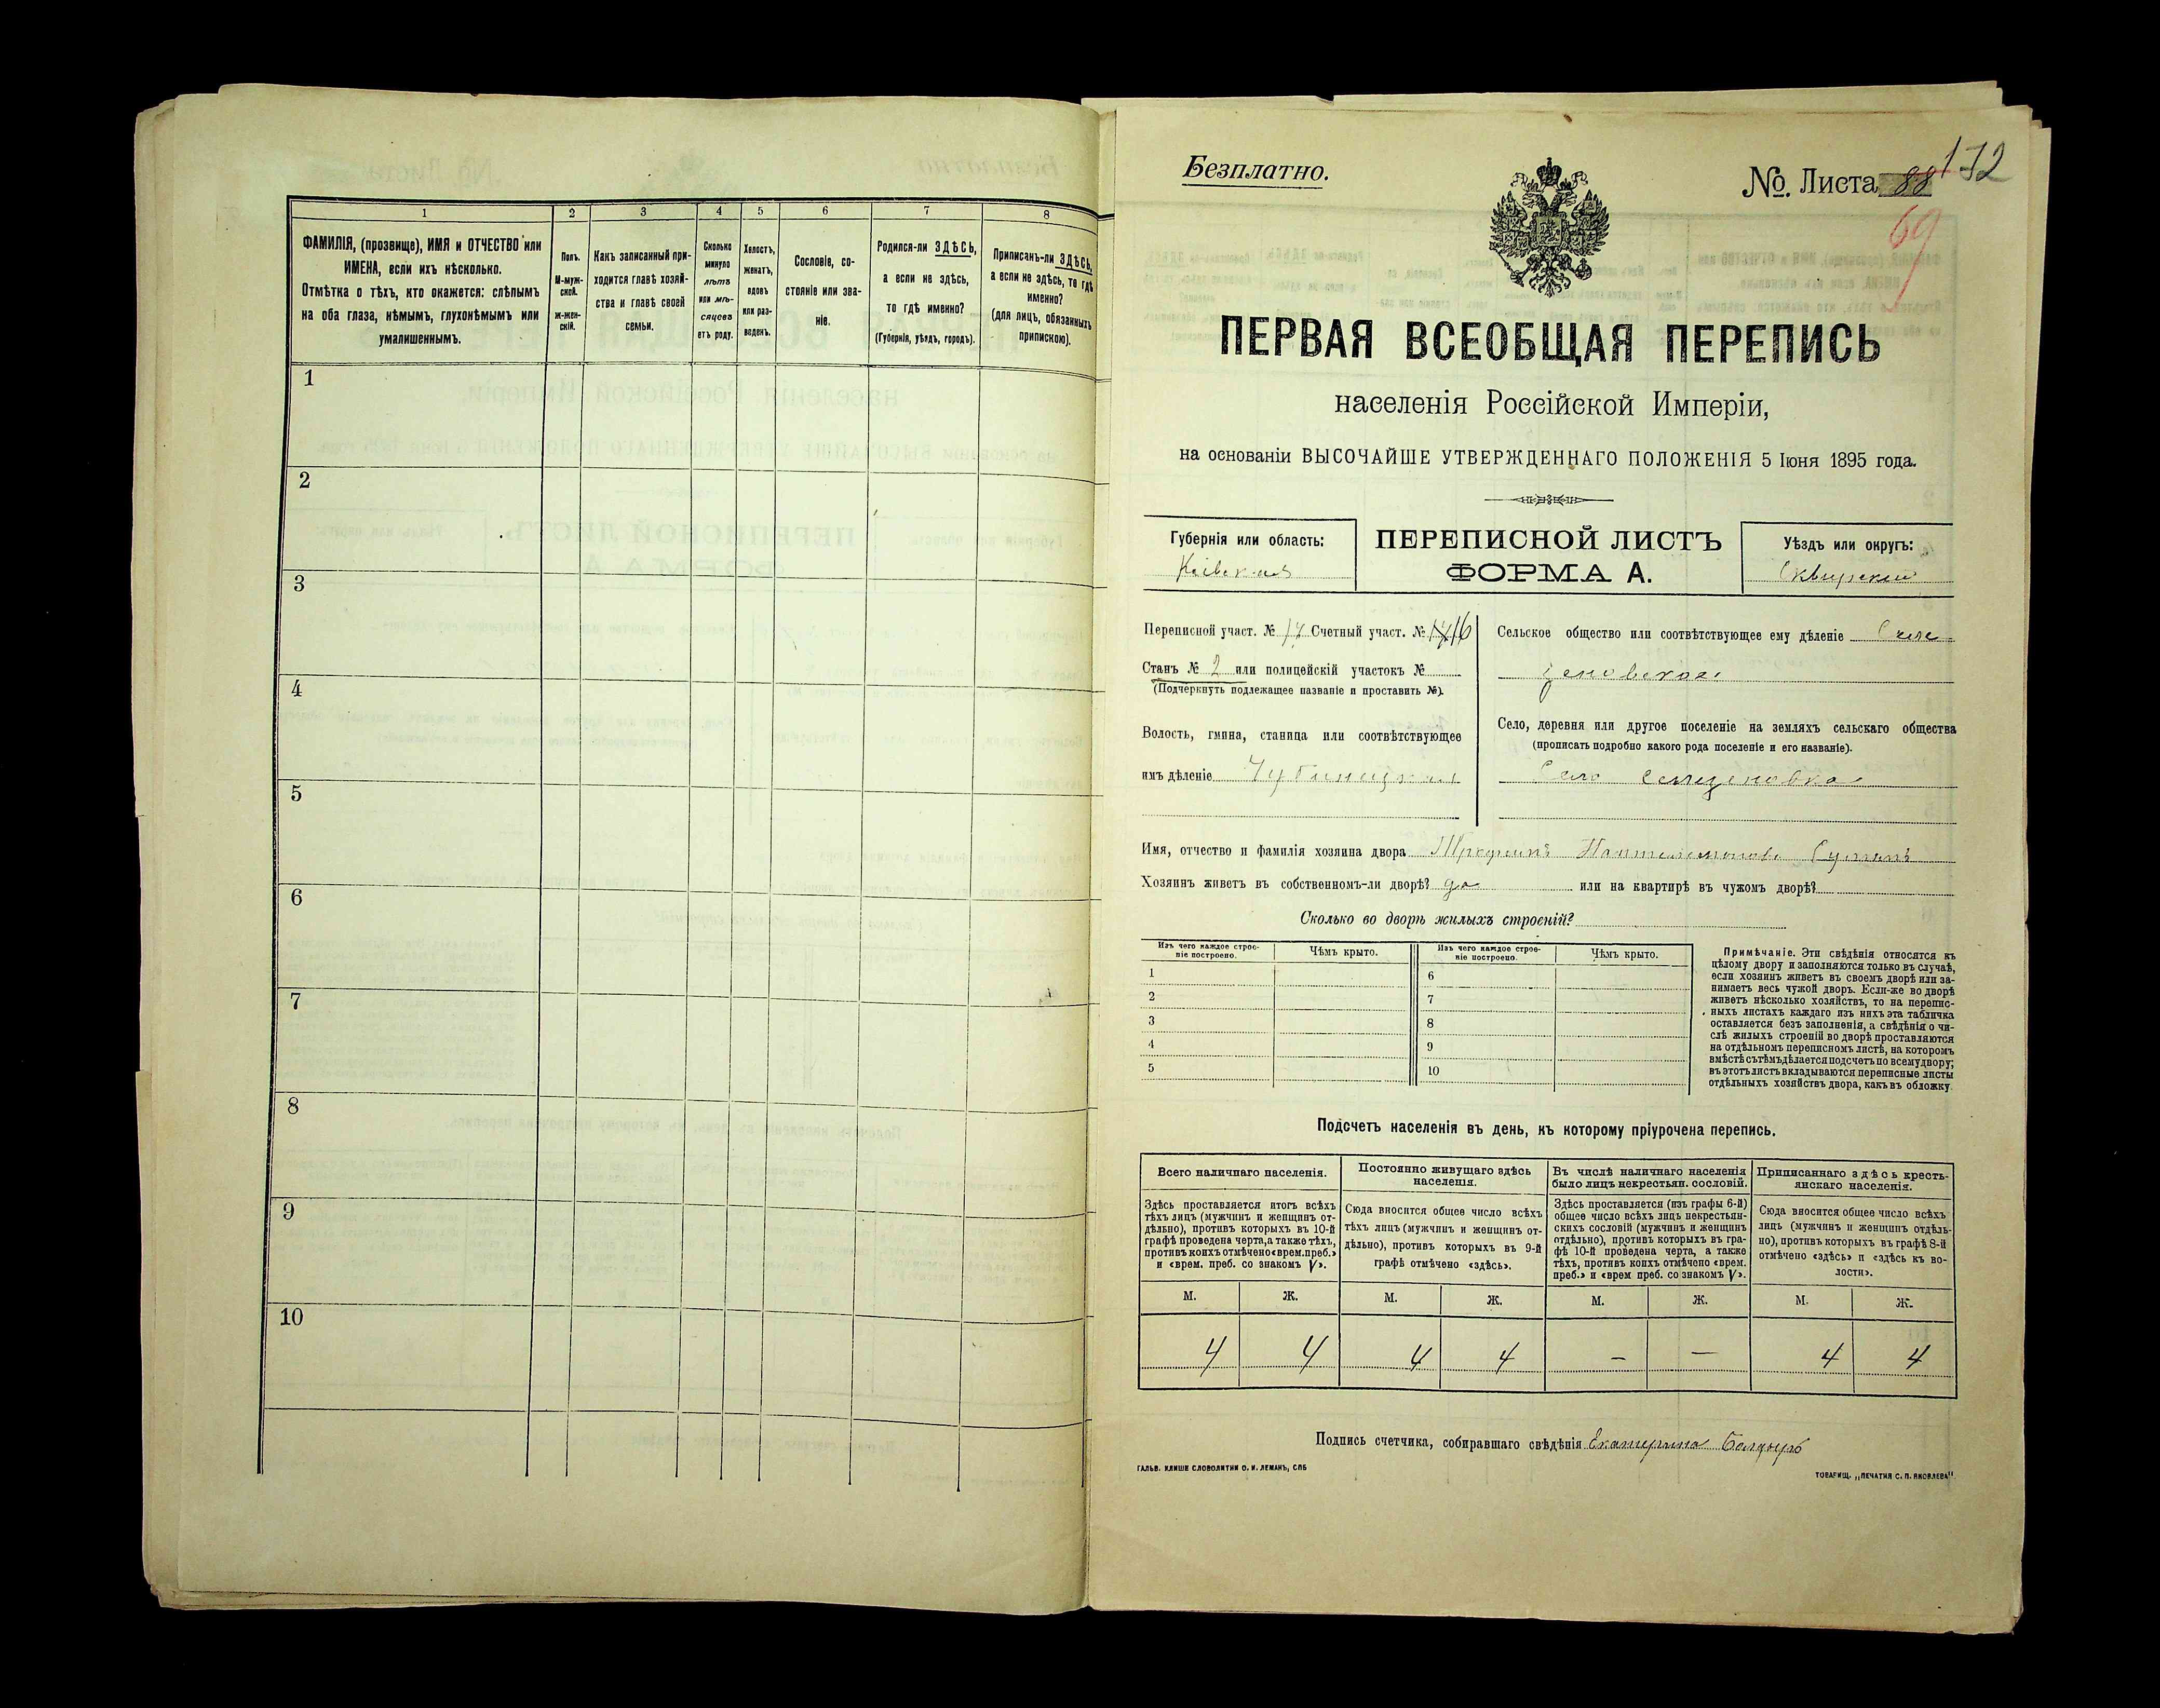 1 2 3 4 5 6 7 8
ФАМИЛІЯ, (прозвище), ИМЯ и ОТЧЕСТВО или
ИМЕНА, если ихъ нѣсколько.
Отмѣтка о тѣхъ, кто окажется: слѣпымъ
на оба глаза, нѣмымъ, глухонѣмымъ или
умалишеннымъ.
Полъ.
М-муж-
ской.
ж-жен-
скій.
Какъ записанный при-
ходится главѣ хозяй-
ства и главѣ своей
семьи.
Сколько
минуло
лѣтъ
или мѣ-
сяцевъ
отъ роду.
Холостъ,
женатъ,
вдовъ
или раз-
веденъ.
Сословіе, со-
стояніе или зва-
ніе.
Родился-ли ЗДѢСЬ,
а если не здѣсь,
то гдѣ именно?
(Губернія, уѣздъ, городъ).
Приписанъ-ли ЗДѢСЬ,
а если не здѣсь, то гдѣ
именно?
(для лицъ, обязанныхъ
припискою).
1
2
3
4
5
6
7
8
9
10
Безплатно.
№. Листа 88
172
69
ПЕРВАЯ ВСЕОБЩАЯ ПЕРЕПИСЬ
населенія Россійской Имперіи,
на основаніи ВЫСОЧАЙШЕ УТВЕРЖДЕННАГО ПОЛОЖЕНІЯ 5 Іюня 1895 года.
Губернія или область:
Кіевская
ПЕРЕПИСНОЙ ЛИСТЪ
ФОРМА А.
Уѣздъ или округъ:
Сквирскій
Переписной участ. № 17 Счетный участ. № 16
Станъ № 2 или полицейскій участокъ №
(Подчеркнуть подлежащее названіе и проставить №).
Волость, гмина, станица или соотвѣтствующее
имъ дѣленіе Чубинецкая
Сельское общество или соотвѣтствующее ему дѣленіе
Село, деревня или другое поселеніе на земляхъ сельскаго общества
(прописать подробно какого рода поселеніе и его названіе).
Село
Имя, отчество и фамилія хозяина двора Трофимъ Пантелемоновъ
Хозяинъ живетъ въ собственномъ-ли дворѣ? да или на квартирѣ въ чужомъ дворѣ?
Сколько во дворѣ жилыхъ строеній?
Изъ чего каждое строе-
ніе построено.
Чѣмъ крыто.
1
2
3
4
5
Изъ чего каждое строе-
ніе построено.
Чѣмъ крыто.
6
7
8
9
10
Примѣчаніе. Эти свѣдѣнія относятся къ
цѣлому двору и заполняются только въ случаѣ,
если хозяинъ живетъ въ своемъ дворѣ или за-
нимаетъ весь чужой дворъ. Если-же во дворѣ
живетъ нѣсколько хозяйствъ, то на перепис-
ныхъ листахъ каждаго изъ нихъ эта табличка
оставляется безъ заполненія, а свѣдѣнія о чи-
слѣ жилыхъ строеній во дворѣ проставляются
на отдѣльномъ переписномъ листѣ, на которомъ
вмѣстѣ съ тѣмъ дѣлается подсчетъ по всему двору;
въ этотъ листъ вкладываются переписные листы
отдѣльныхъ хозяйствъ двора, какъ въ обложку.
Подсчетъ населенія въ день, къ которому пріурочена перепись.
Всего наличнаго населенія.
Здѣсь проставляется итогъ всѣхъ
тѣхъ лицъ (мужчинъ и женщинъ от-
дѣльно), противъ которыхъ въ 10-й
графѣ проведена черта, а также тѣхъ,
противъ коихъ отмѣчено «врем. преб.»
и «врем. преб. со знакомъ V».
Постоянно живущаго здѣсь
населенія.
Сюда вносится общее число всѣхъ
тѣхъ лицъ (мужчинъ и женщинъ от-
дѣльно), противъ которыхъ въ 9-й
графѣ отмѣчено «здѣсь».
Въ числѣ наличнаго населенія
было лицъ некрестьян. сословій.
Здѣсь проставляется (изъ графы 6-й)
общее число всѣхъ лицъ некрестьян-
скихъ сословій (мужчинъ и женщинъ
отдѣльно), противъ которыхъ въ гра-
фѣ 10-й проведена черта, а также
тѣхъ, противъ коихъ отмѣчено «врем.
преб.» и «врем преб. со знакомъ V».
Приписаннаго здѣсь кресть-
янскаго населенія.
Сюда вносится общее число всѣхъ
лицъ (мужчинъ и женщинъ отдѣль-
но), противъ которыхъ въ графѣ 8-й
отмѣчено «здѣсь» и «здѣсь къ во-
лости».
М. Ж. М. Ж. М. Ж. М. Ж.
4 4 4 4 — — 4 4
Подпись счетчика, собиравшаго свѣдѣнія Екатерина
ГАЛЬВ. КЛИШЕ СЛОВОЛИТНИ О. И. ЛЕМАНЪ, СПБ
ТОВАРИЩ. „ПЕЧАТНЯ С. П. ЯКОВЛЕВА“